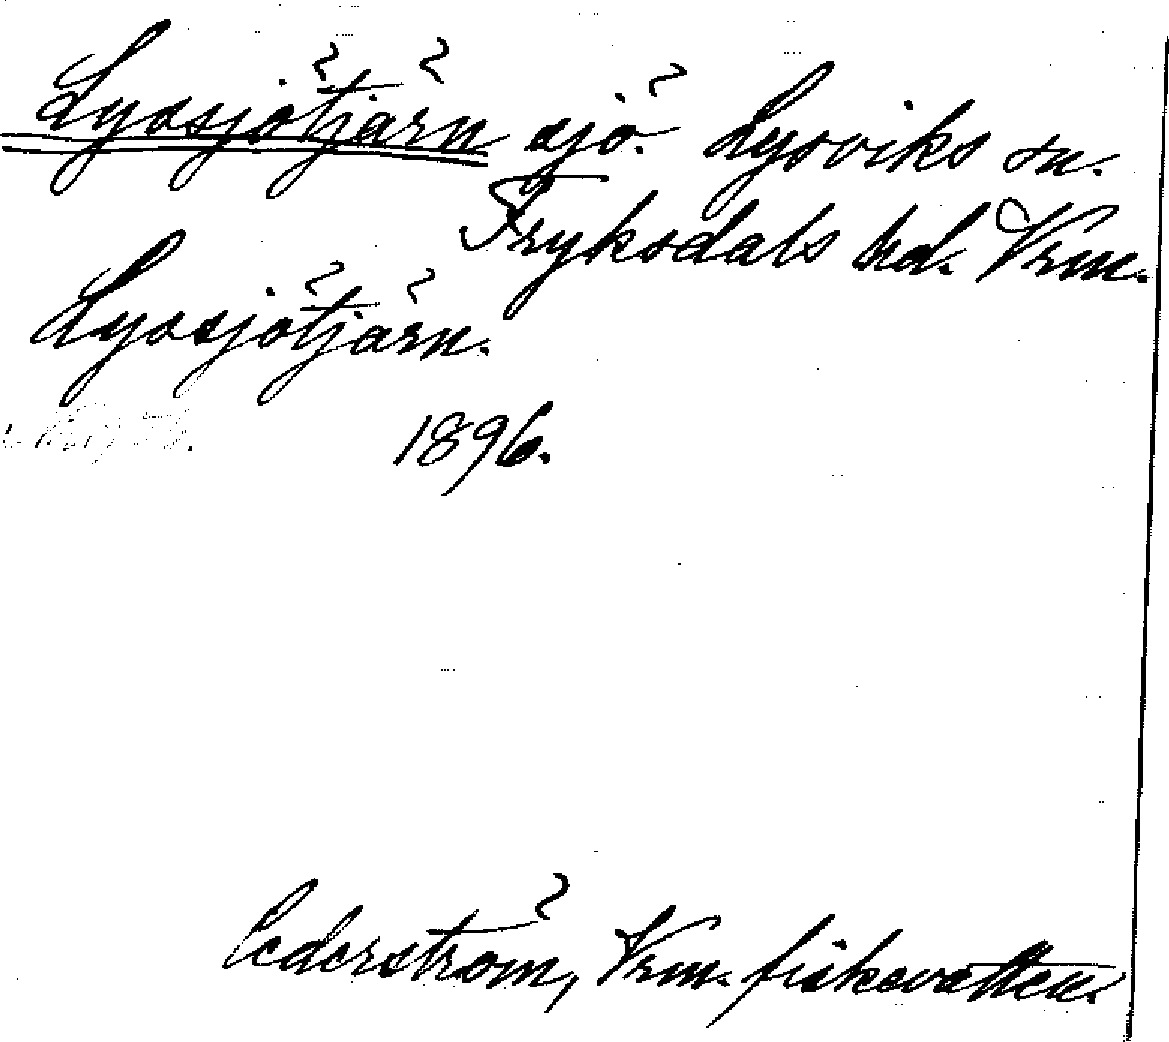 Lyssjötjärn sjö. Lysviks sn.
Fryksdals hd. Vrm.
Lyssjötjärn.
1896.
Cederström, Vrm. fiskevatten.